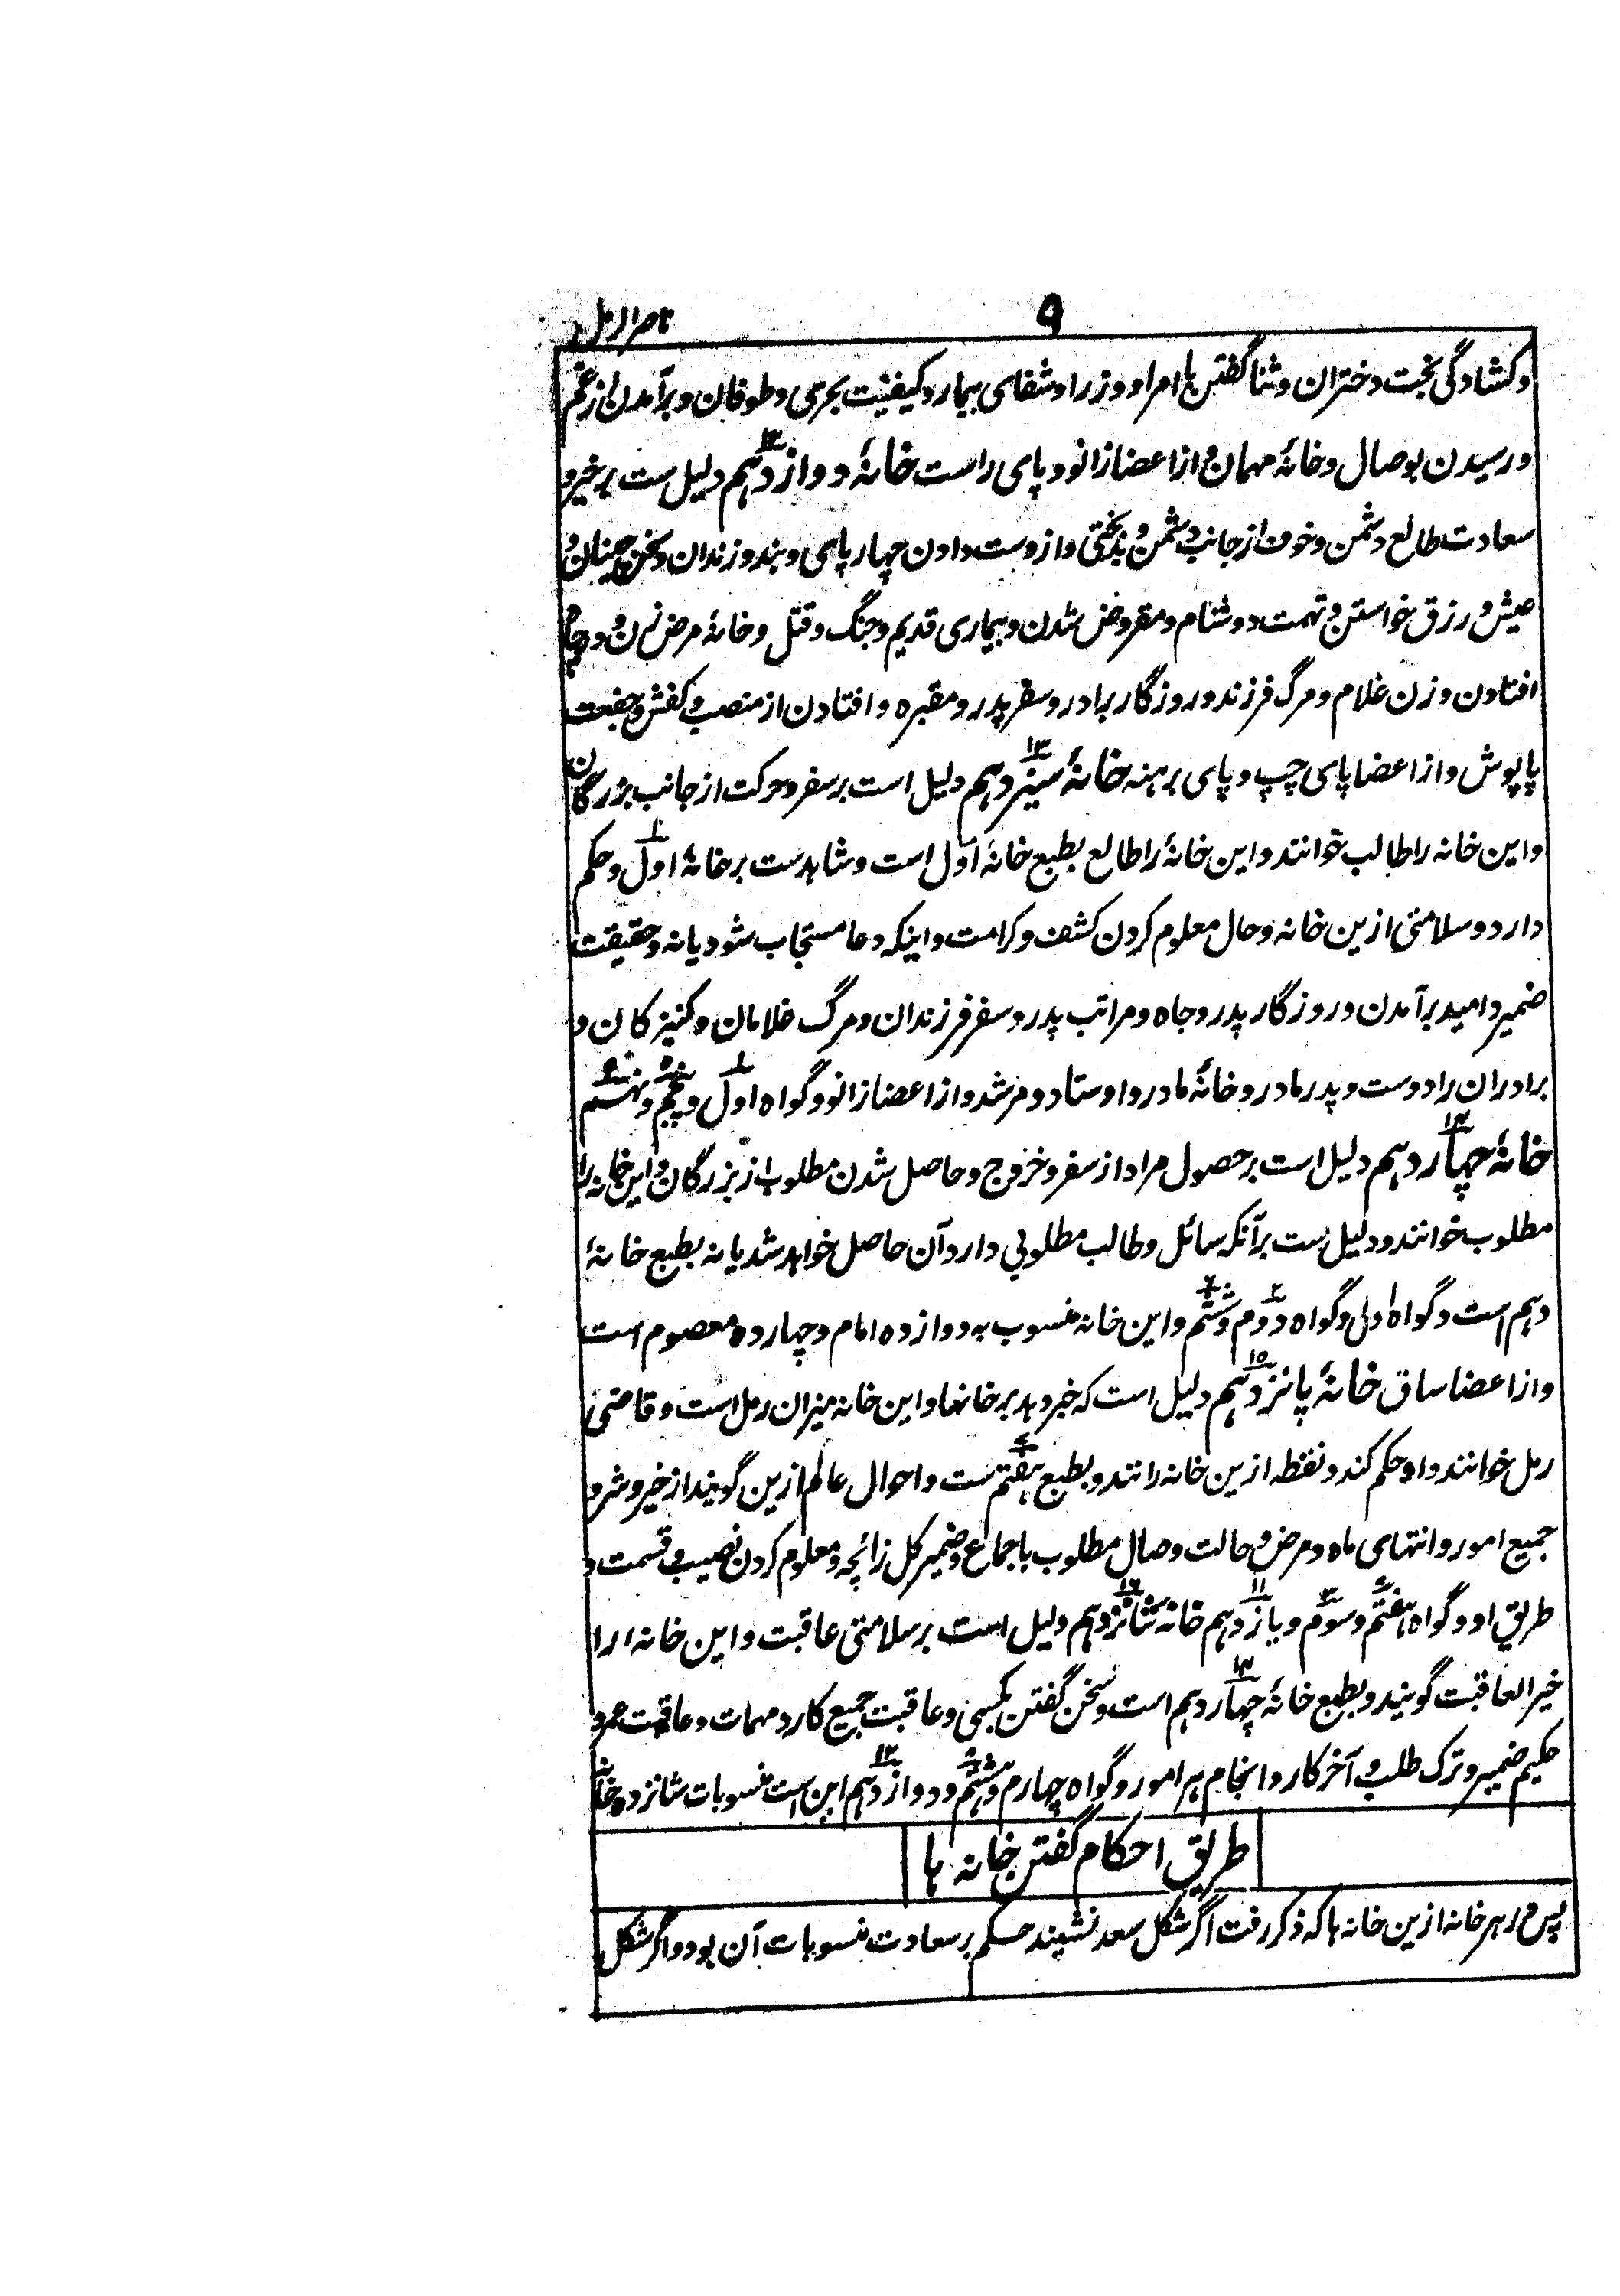 ۹
ناصر الرمل
و کشادگی بخت دختران و ثنا گفتن با امرا و وزرا و شفای بیمار و کیفیت بحری و طوفان و برآمدن از غم
و رسیدن بوصال و خانهٔ مهمان و از اعضا زانو و پای راست خانهٔ دوازدهم ۱۲ دلیل ست بر خیر و
سعادت طالع دشمن و خوف از جانب دشمن و بدبختی و از دست دادن چهارپای و بند و زندان و سخن چینان و
عیش و رزق خواستن و تهمت و دشنام و مقروض شدن و بیماری قدیم و جنگ و قتل و خانهٔ مرض زن و در چاه
افتادن و زن غلام و مرگ فرزند و روزگار برادر و سفر پدر و مقبره و افتادن از منصب و کفش و جفت
پاپوش و از اعضا پای چپ و پای برهنه خانهٔ سیزدهم ۱۳ دلیل است بر سفر و حرکت از جانب بزرگان
و این خانه را طالب خوانند و این خانهٔ را طالع بطبع خانهٔ اول است و شاهدست بر خانهٔ اول ۱ و حکم
دارد و سلامتی ازین خانه و حال معلوم کردن کشف و کرامت و اینکه دعا مستجاب شود یا نه و حقیقت
ضمیر و امید برآمدن و روزگار پدر و جاه و مراتب پدر و سفر فرزندان و مرگ غلامان و کنیزکان و
برادران را دوست و پدر مادر و خانهٔ مادر و اوستاد و مرشد و از اعضا زانو و گواه اول ۱ و پنجم ۵ و نهم ۹
خانهٔ چهاردهم ۱۴ دلیل است بر حصول مراد از سفر و خروج و حاصل شدن مطلوب از بزرگان و این خانه را
مطلوب خوانند و دلیل ست بر آنکه سائل و طالب مطلوبی دارد آن حاصل خواهد شد یا نه بطبع خانهٔ
دهم است و گواه دلی و گواه دوم ۲ و ششم ۶ و این خانه منسوب به دوازده امام و چهارده معصوم است
و از اعضا ساق خانهٔ پانزدهم ۱۵ دلیل است که خبر دهد بر خانها و این خانه میزان رمل است و قاضی
رمل خوانند و او حکم کند و نقطه ازین خانه رانند و بطبع هفتم ۷ ست و احوال عالم ازین گویند از خیر و شر و
جمیع امور و انتهای ماه و مرض و حالت وصال مطلوب با جماع و ضمیر کل زائچه و معلوم کردن نصیب و قسمت و
طریق او و گواه هفتم ۷ و سوم ۳ و یازدهم ۱۱ خانه شانزدهم ۱۶ دلیل است بر سلامتی عاقبت و این خانه را
خیر العاقبت گویند و بطبع خانهٔ چهاردهم ۱۴ است و سخن گفتن بکسی و عاقبت جمیع کار و مهمات و عاقبت عمر و
حکیم ضمیر و ترک طلب و آخر کار و انجام هر امور و گواه چهارم و هشتم ۸ و دوازدهم ۱۲ این است منسوبات شانزده خانه
طریق احکام گفتن خانه ها
پس در هر خانه ازین خانه ها که ذکر رفت اگر شکل سعد نشیند حکم بر سعادت منسوبات آن بود و اگر شکل